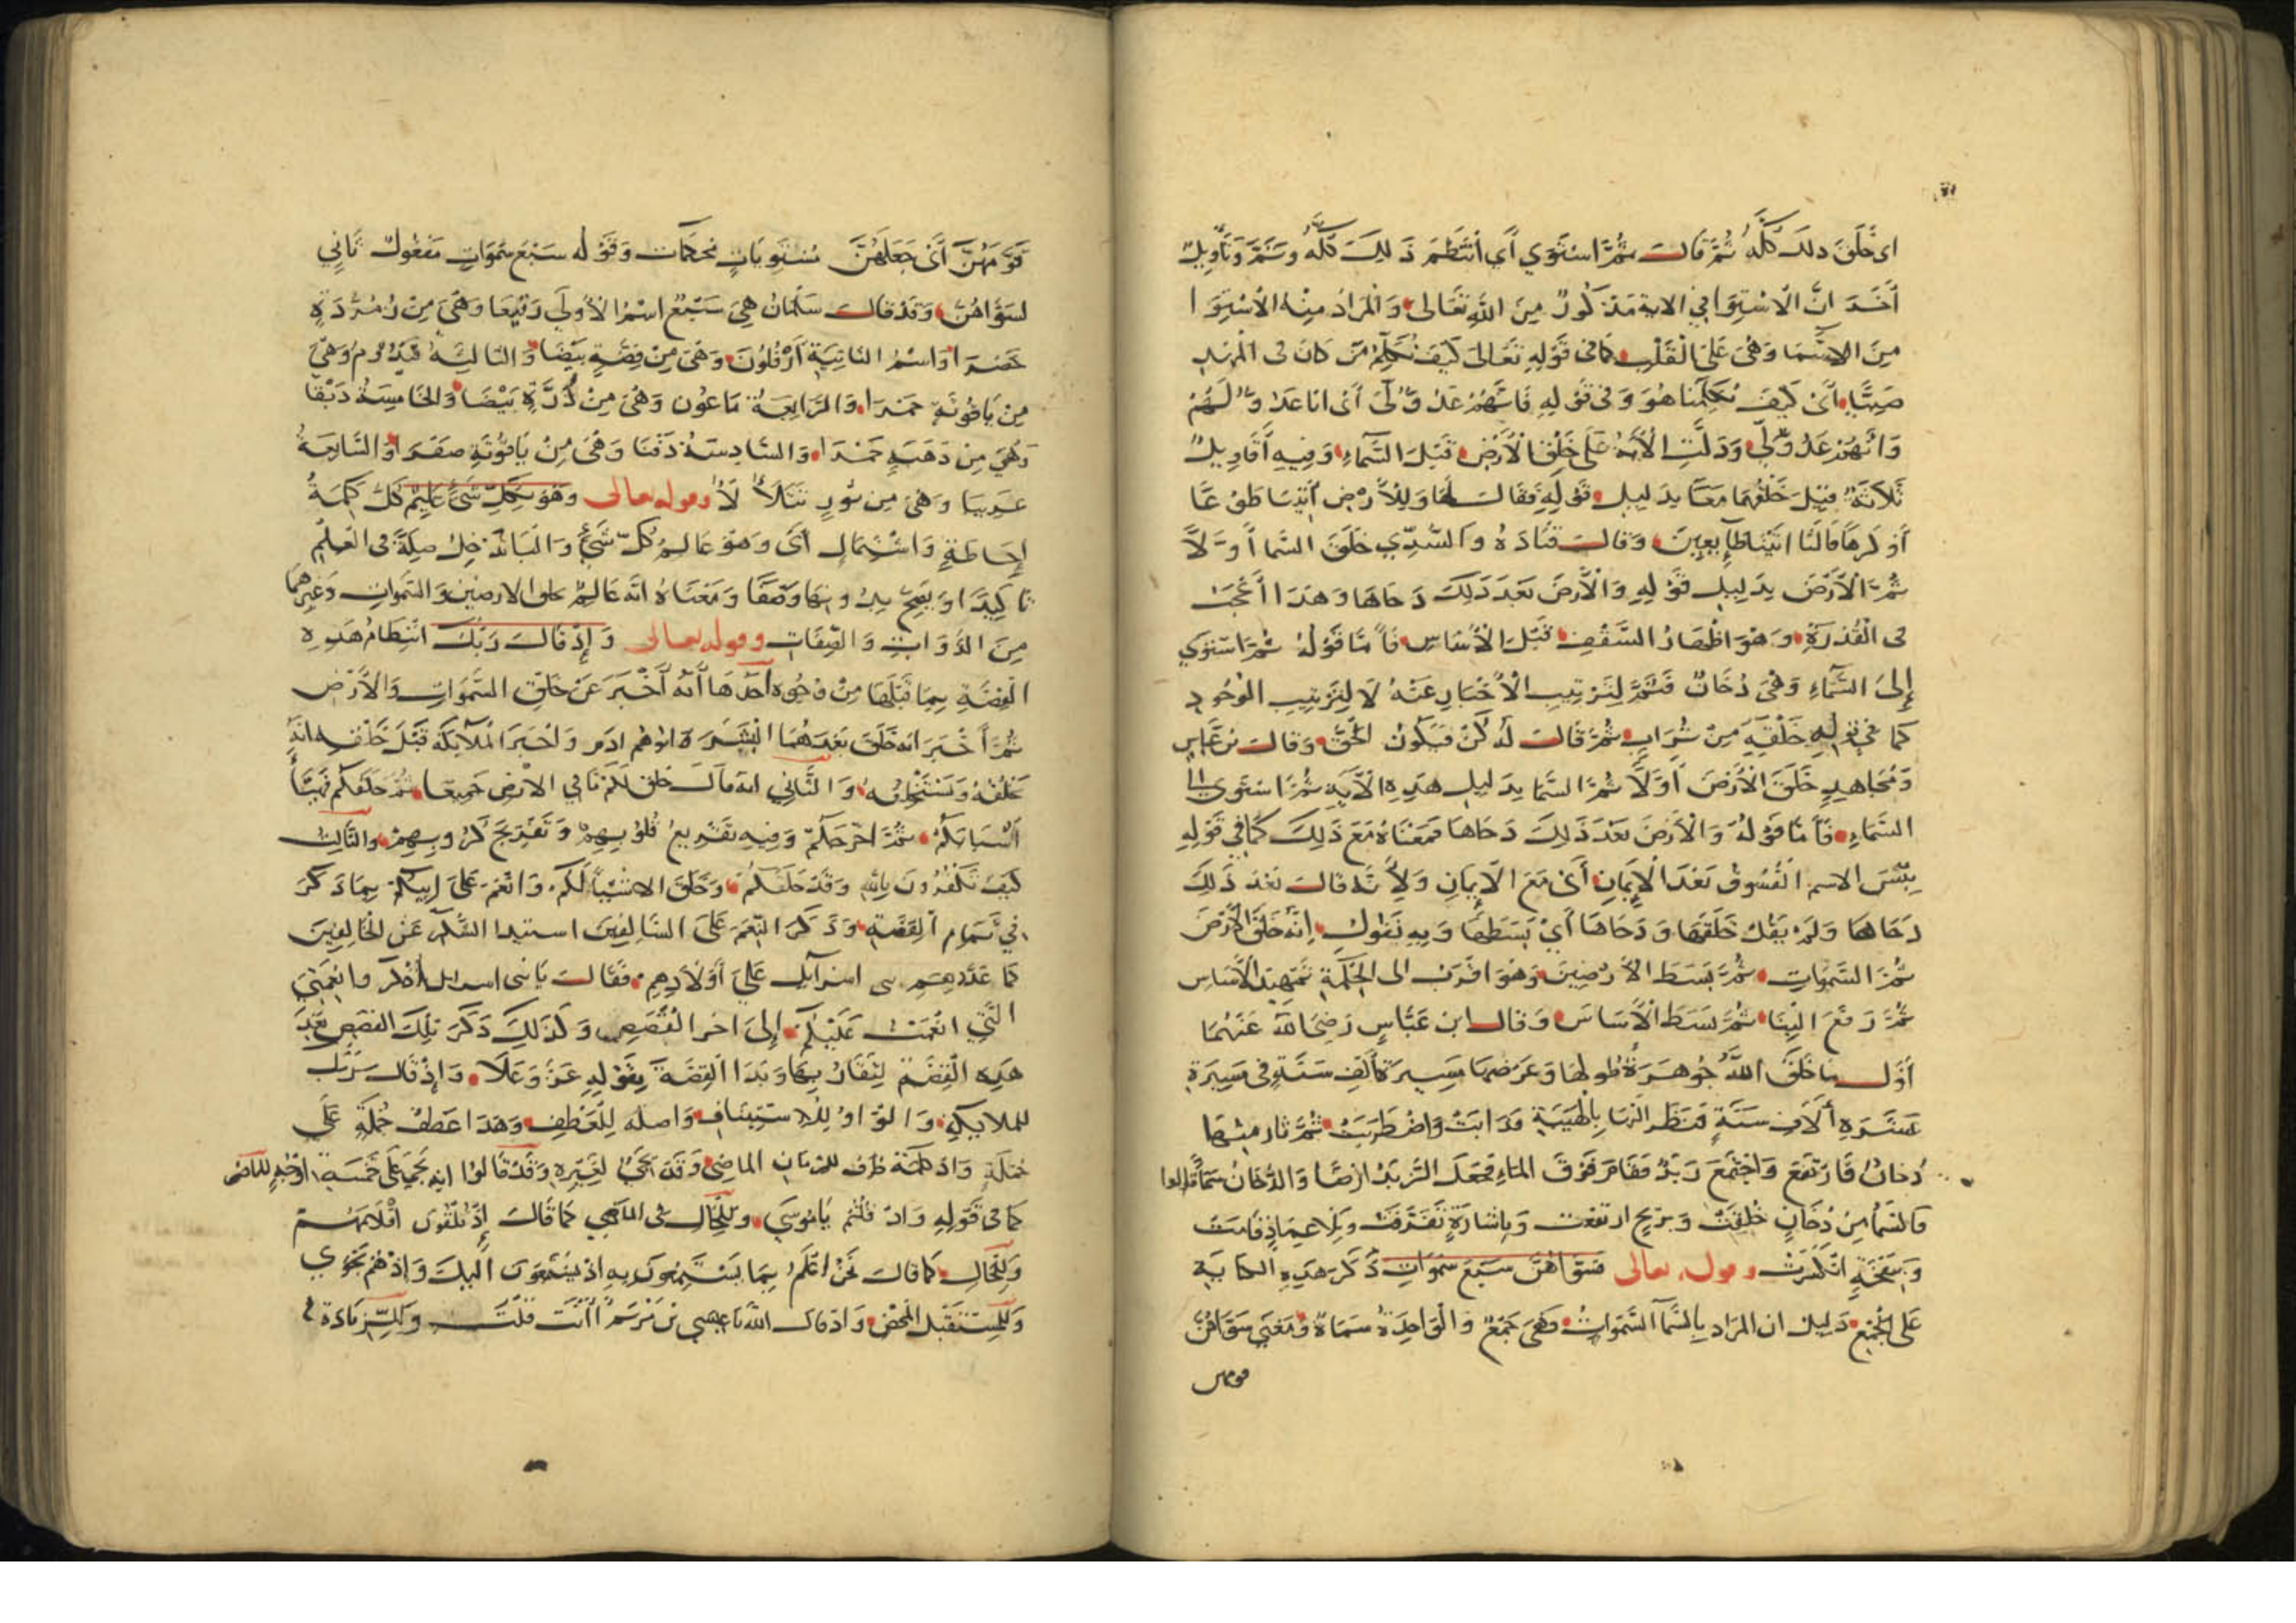 اى خلق ذلك كله ثم قال ثم استوى أى انتظم ذلك كله وتم وتأويل
آخر ان الاستوا في الاية مذكور من الله تعالى والمراد منه الاستوا
من السما وهى على القلب كما فى قوله تعالى كيف نكلم من كان فى المهد
صبيا أى كيف يكلمنا هو وفى قوله فانهم عدو لى أى انا عدو لهم
وانهم عدو لى ودلت الآية على خلق الأرض قبل السماء وفيه أقاويل
ثلاثة قيل خلقهما معا بدليل قوله فقال لها وللأرض ائتيا طوعا
أو كرها قالتا اتينا طايعين وقال قتادة والسدي خلق السما أولا
ثم الأرض بدليل قوله والأرض بعد ذلك دحاها وهذا أعجب
فى القدرة وهو اظهار السقف قبل الأساس فأما قوله ثم استوى
إلى السماء وهى دخان فثم لترتيب الأخبار عنه لا لترتيب الوجود
كما في قوله خلقه من تراب ثم قال له كن فيكون الحق وقال بن عباس
ومجاهد خلق الأرض أولا ثم السما بدليل هذه الآية ثم استوى الى
السماء فأما قوله والارض بعد ذلك دحاها فمعناه مع ذلك كما في قوله
بئس الاسم الفسوق بعد الإيمان أى مع الإيمان ولأنه قال بعد ذلك
دحاها ولم يقل خلقها ودحاها أي بسطها وبه نقول إنه خلق الأرض
ثم السموات ثم بسط الأرضين وهو اقرب الى الحكمة تمهيد الأساس
ثم رفع البنا ثم بسط الأساس وقال ابن عباس رضى الله عنهما
أول ما خلق الله جوهرة طولها وعرضها مسيرة ألف سنة في مسيرة
عشرة ألاف سنة فنظر اليها بالهيبة فذابت واضطربت ثم ثار منها
دخان فارتفع واجتمع زبد فقام فوق الماء فجعل الزبد ارضا والدخان سما قالوا
فالسما من دخان خلقت وبريح ارتفعت وباشارة تفرقت وبلا عماد قامت
وبنفخة انكسرت وقوله تعالى فسواهن سبع سموات ذكر هذه الكناية
على الجمع دليل ان المراد بالسما السموات وهى جمع والواحدة سماة ومعنى سواهن
قومهن
قومهن أى جعلهن مستويات محكمات وقوله سبع سموات مفعول ثاني
لسواهن وقد قال سلمان هى سبع اسم الأولى رقيعا وهى من زمردة
خضرا واسم الثانية أرقلون وهى من فضة بيضا والثالثة قيدوم وهى
من ياقوتة حمرا والرابعة ماعون وهى من درة بيضا والخامسة دبقا
وهى من ذهب حمرا والسادسة دفنا وهى من ياقوتة صفرا والسابعة
عريبا وهى من نور تتلألأ وقوله تعالى وهو بكل شىء عليم كل كلمة
إحاطة واشتمال أى وهو عالم كل شىء والبا تدخل صلة فى العلم
تاكيدا ويصح بدونها وصفا ومعناه انه عالم بخلق الارضين والسموات وغيرهما
من الذوات والصفات وقوله تعالى وإذ قال ربك انتظام هذه
القصة بما قبلها من وجوه أحدها أنه أخبر عن خلق السموات والأرض
ثم أخبر انه خلق بعدهما البشر ابوهم ادم واخبر الملايكة قبل خلقه انه
يخلقه ويستخلفه والثاني انه قال خلق لكم ما في الارض جميعا ثم خلقكم
انسابكم ثم اخرجكم وفيه تقريع قلوبهم وتفريج كروبهم والثالث
كيف تكفرون بالله وقد خلقكم وخلق الاشيا لكم وانعم على ابيكم بما ذكر
في تمام القصة وذكر النعم على السالفين استيدا الشكر عن الخالفين
كما عدد نعم بنى اسرآيل على أولادهم فقال يا بنى اسرايل اذكروا نعمتى
التي انعمت عليكم إلى اخر القصص وكذلك ذكر تلك القصص بعد
هذه القصة وبدا القصة بقوله عز وعلا وإذ قال ربك
للملايكة والواو للاستيناف واصله للعطف وهذا عطف جملة على
جملة واذ كلمة ظرف للزمان الماضى وقد تجى لغيره وقد قالوا انه يجى على خمسة اوجه للماضى
كما فى قوله واذ قلتم يا موسى وللحال فى الماضي كما قال إذ يلقون أقلامهم
وللحال كما قال نحن اعلم بما يستمعون به اذ يستمعون اليك وإذ هم نجوى
وللمستقبل المحض واذ قال الله يا عيسى بن مريم أأنت قلت وللزيادة